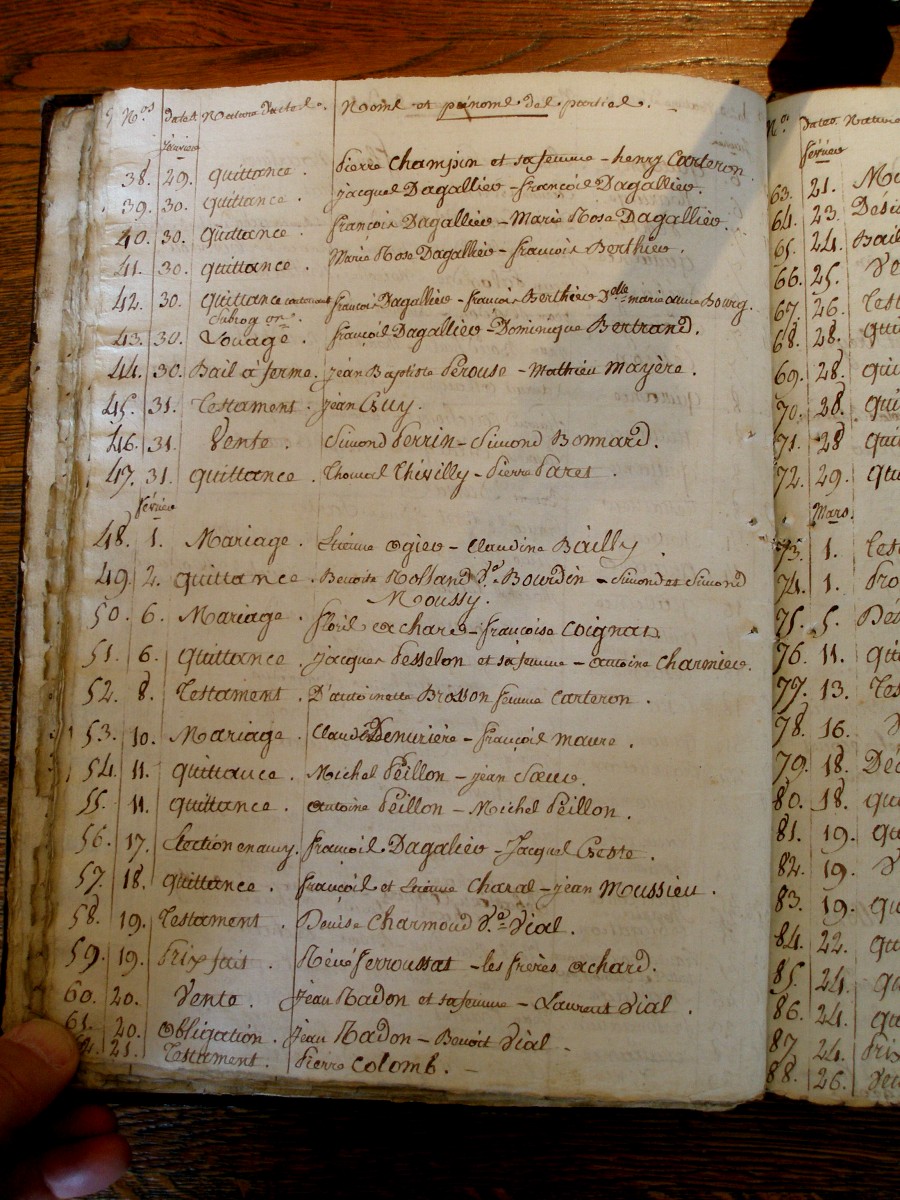 Nos dates Nature d'actes. Noms et prénoms des parties.
Janvier
38. 29. quittance. Pierre Champin et sa femme - henry Carteron
39. 30. quittance. jacques Dagallier - françois Dagallier.
40. 30. quittance. françois Dagallier - Marie Rose Dagallier.
41. 30. quittance. Marie Rose Dagallier - francois Berthier.
42. 30. quittance contenant françois Dagallier - françois Berthier Delle marie anne Bourg.
subrogon.
43. 30. Louage. françois Dagallier - Dominique Bertrand.
44. 30. Bail à ferme. jean Baptiste Pérouse - Mathieu Mayère.
45. 31. Testament. jean Guy.
46. 31. Vente. Simond Perrin - Simond Bonnard.
47. 31. quittance. Thomas Thivilly - Pierre Pares.
février
48. 1. Mariage. Etienne Ogier - Claudine Bailly.
49. 2. quittance. Benoite Rolland Ve Bourdin - Simond et Simond
Moussy.
50. 6. Mariage. floris achard - françoise Coignat
51. 6. quittance. jacques Pesselon et sa femme - antoine Charmier.
52. 8. Testament. D'antoinette Brosson femme Carteron.
53. 10. Mariage. Claude Denurière - françois Maure.
54. 11. quittance. Michel Peillon - jean Sœur.
55. 11. quittance. antoine Peillon - Michel Peillon.
56. 17. Election en amy. françois Dagalier - Jacques Creste.
57. 18. quittance. françois et Etienne Charal - jean Moussieu.
58. 19. Testament. Denise Charmond Ve Vial.
59. 19. Prix fait. Réné ferroussat - les frères achard.
60. 20. Vente. Jean Radon et sa femme - Laurent Vial.
61. 20. Obligation. Jean Radon - Benoit Vial.
21. Testament. Pierre Colomb.
Nos Dates Nature
février
63. 21.
64. 23.
65. 24. Bail
66. 25. Ve
67. 26. Test
68. 28. qui
69. 28. qui
70. 28. qui
71. 28 qui
72. 29. qu
Mars.
73. 1. Tes
74. 1.
75. 5.
76. 11. qui
77. 13. Tes
78. 16. V
79. 18. Dé
80. 18. qu
81. 19. qu
82. 19. V
83. 19. qu
84. 22. qu
85. 24. qu
86. 24. qu
87. 24. Prix
88. 26. Ven